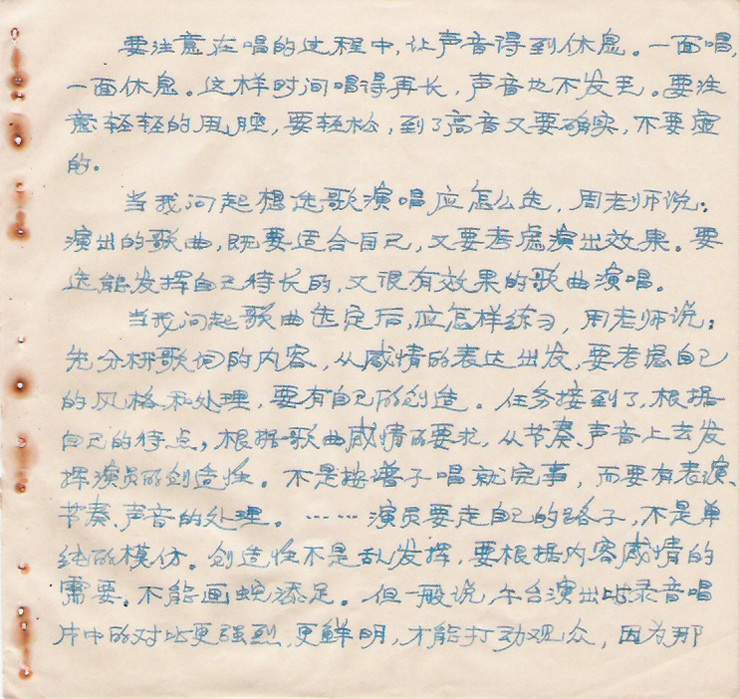 要注意在唱的过程中，让声音得到休息。一面唱，
一面休息。这样时间唱得再长，声音也不发毛。要注
意轻轻的甩腔，要轻松，到了高音又要确实，不要虚
的。
当我问起想选歌演唱应怎么选，周老师说：
演出的歌曲，既要适合自己，又要考虑演出效果。要
选能发挥自己特长的，又很有效果的歌曲演唱。
当我问起歌曲选定后，应怎样练习，周老师说：
先分析歌词的内容，从感情的表达出发，要考虑自己
的风格和处理，要有自己的创造。任务接到了，根据
自己的特点，根据歌曲感情的要求，从节奏、声音上去发
挥演员的创造性。不是按谱子唱就完事，而要有表演、
节奏、声音的处理。……演员要走自己的路子，不是单
纯的模仿。创造性不是乱发挥，要根据内容感情的
需要。不能画蛇添足。但一般说，午台演出比录音唱
片中的对比更强烈，更鲜明，才能打动观众，因为那